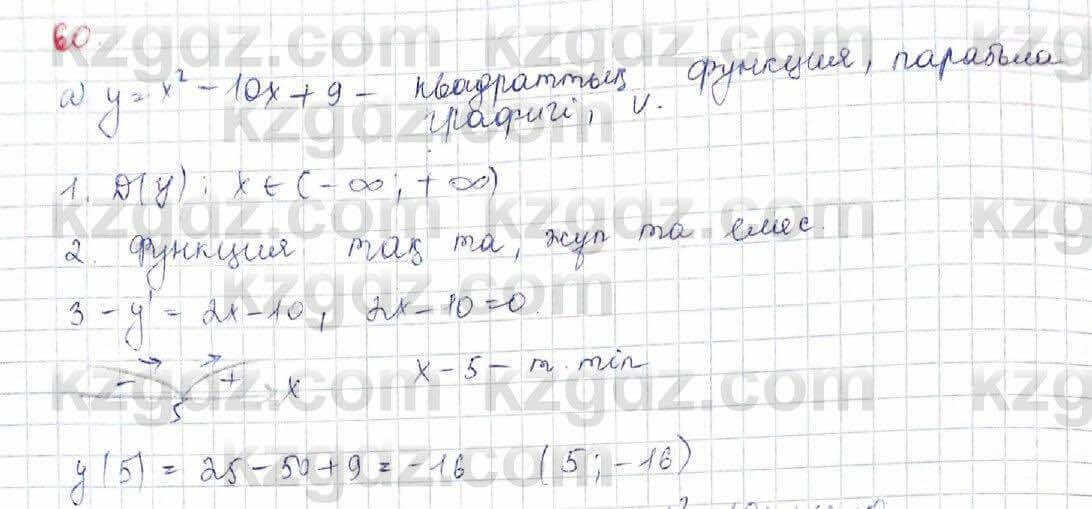 60.
а) y = x² - 10x + 9 - квадраттың функция, парабола
графигі, v.
1. D(y) : x ∈ (-∞; +∞)
2. Функция тақ та, жұп та емес.
3 - y' = 2x - 10, 2x - 10 = 0.
- + x x - 5 - т. min
5
y(5) = 25 - 50 + 9 = -16 (5; -16)
kzgdz.com